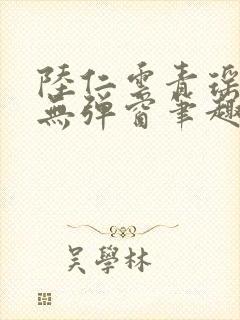 陸仁雲青瑤
無彈窗筆趣
吳學林